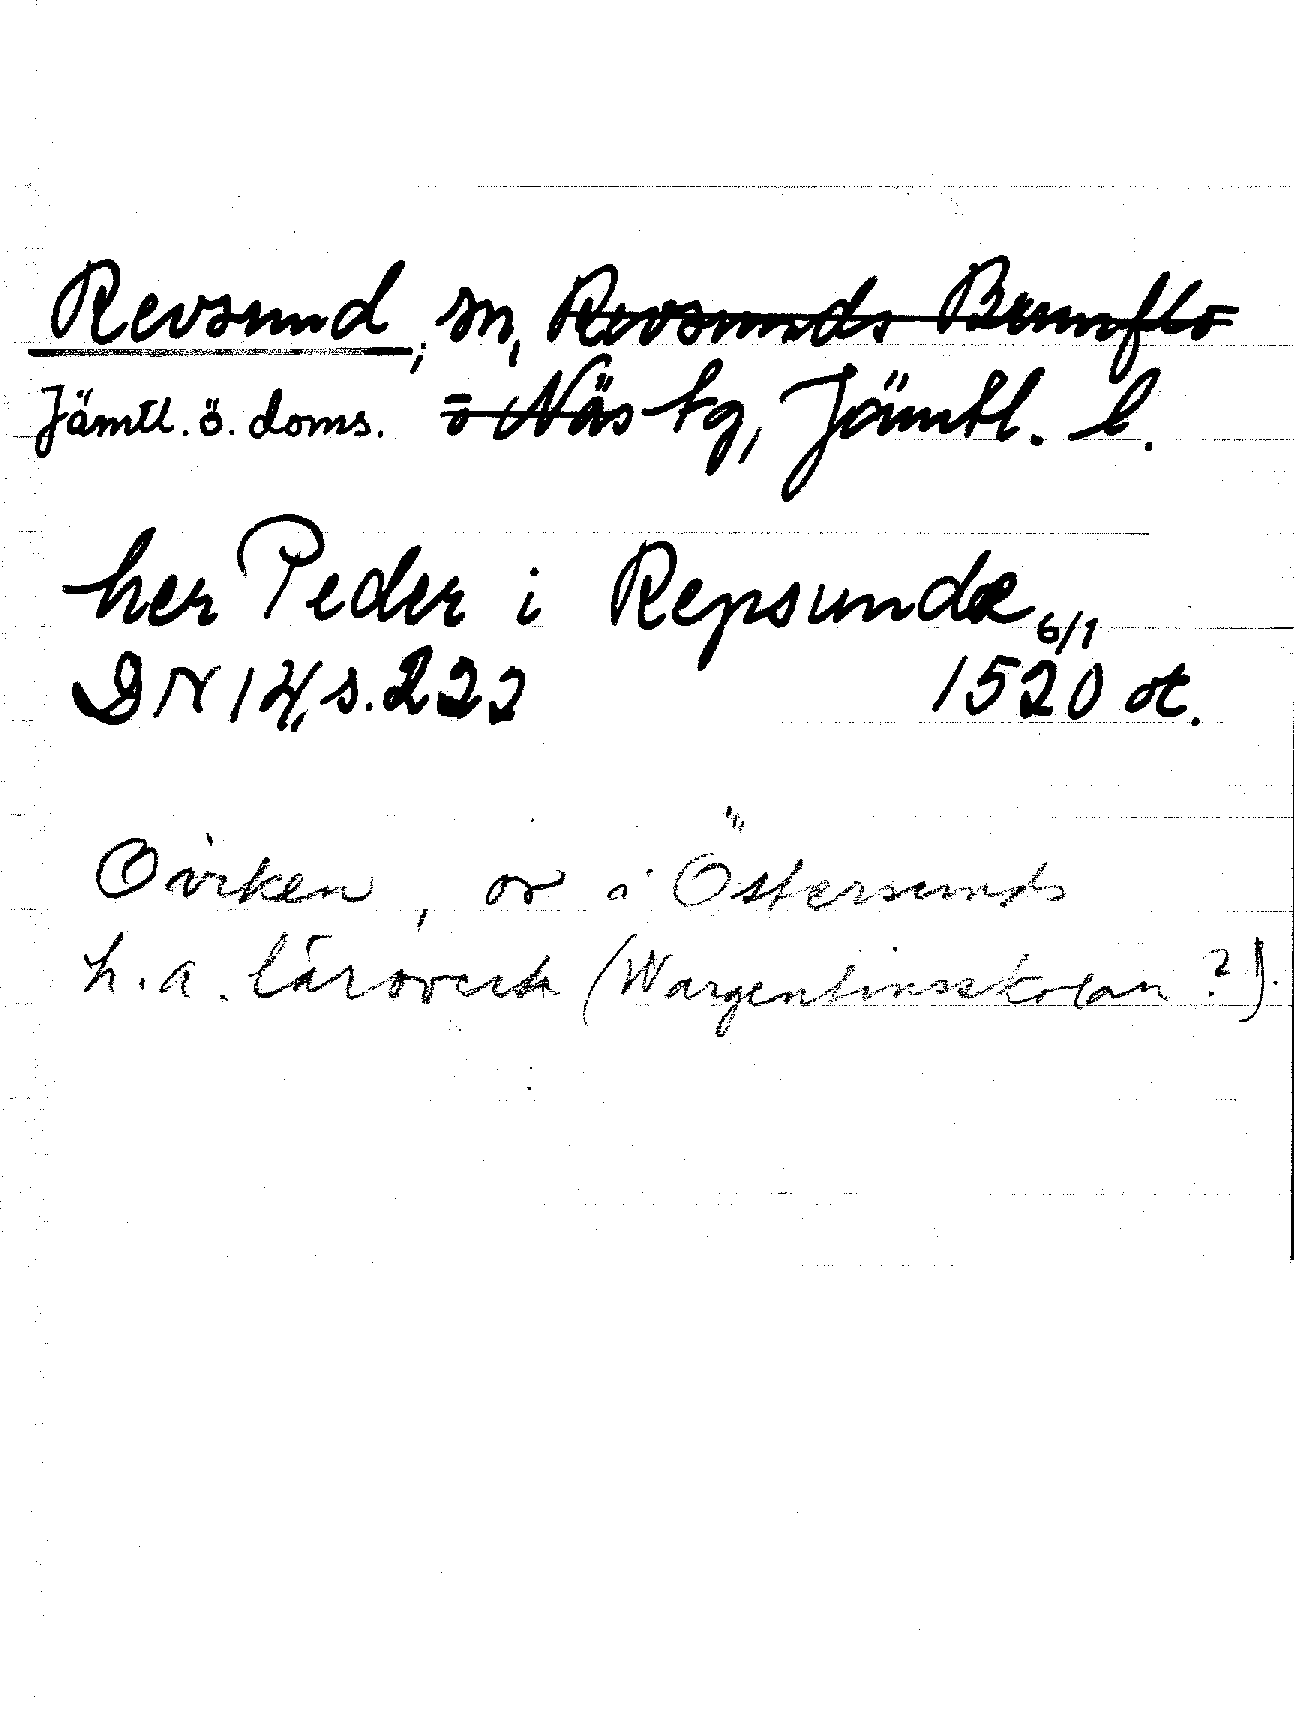 Revsund, sn, Revsunds Brunflo
Jämtl. ö. doms. o Näs tg, Jämtl. l.
her Peder i Repsundæ 6/1
DN 14, s. 222 1520 ot.
Oviken, or i Östersunds
h. a. läroverk (Wargentinsskolan ?).